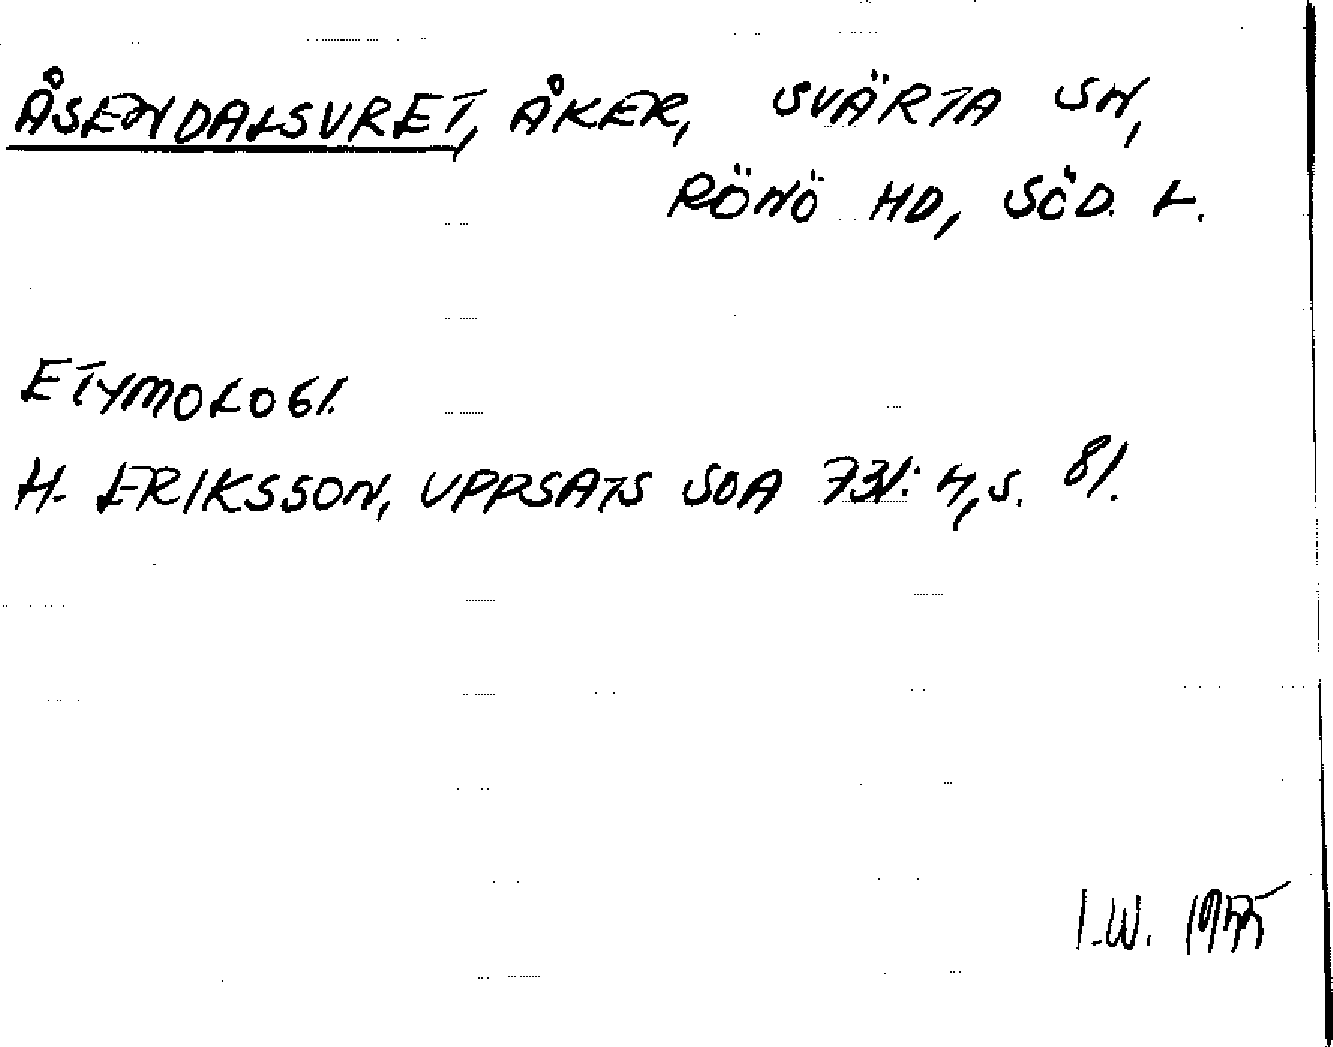 ÅSENDALSVRET, ÅKER, SVÄRTA SN,
RÖNÖ HD, SÖD. L.
ETYMOLOGI.
H. ERIKSSON, UPPSATS SOA 731: 4, S. 81.
I.W.